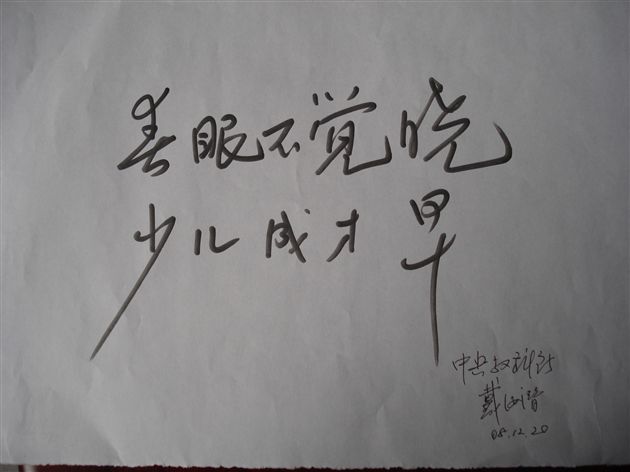 春眠不觉晓
少儿成才早
中央教科所
戴汝潜
08.12.20